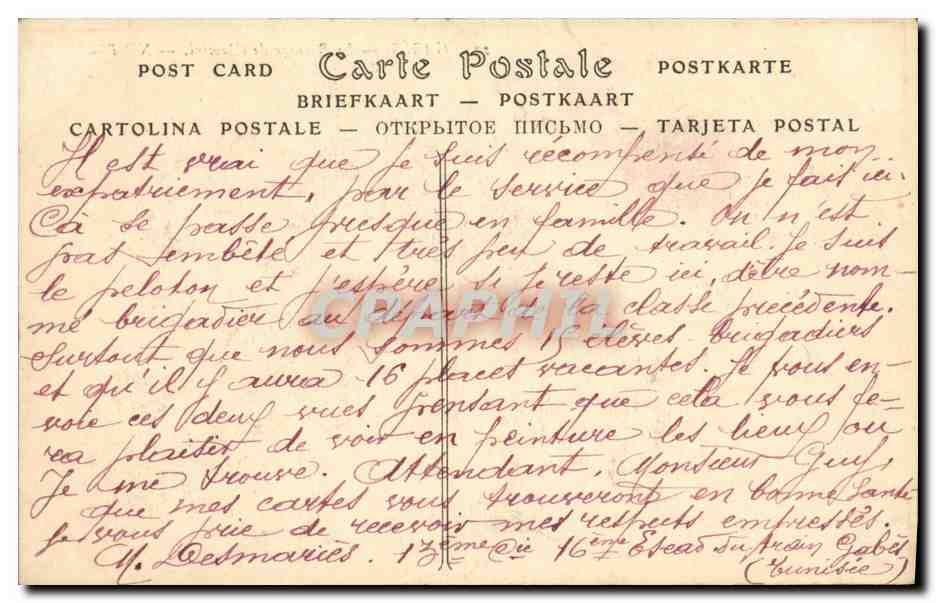 POST CARD Carte Postale POSTKARTE
BRIEFKAART — POSTKAART
CARTOLINA POSTALE — ОТКРЫТОЕ ПИСЬМО — TARJETA POSTAL
Il est vrai que je suis récompensé de mon
expatriement, par le service que je fais ici.
Cà se passe presque en famille. On n'est
pas embêté et très peu de travail. Je suis
le peloton et j'espère, si je reste ici, d'être nom-
mé brigadier au départ de la classe précédente.
Surtout que nous sommes 15 élèves brigadiers
et qu'il y aura 16 places vacantes. Je vous en-
voie ces deux vues pensant que cela vous fe-
ra plaisir de voir en peinture les lieux où
Je me trouve. Attendant, Monsieur Guy,
que mes cartes vous trouveront en bonne santé
je vous prie de recevoir mes respects empressés.
M. Desmariès. 17ème Cie 16ème Escad du train Gabès
(Tunisie)
CPAPHIL